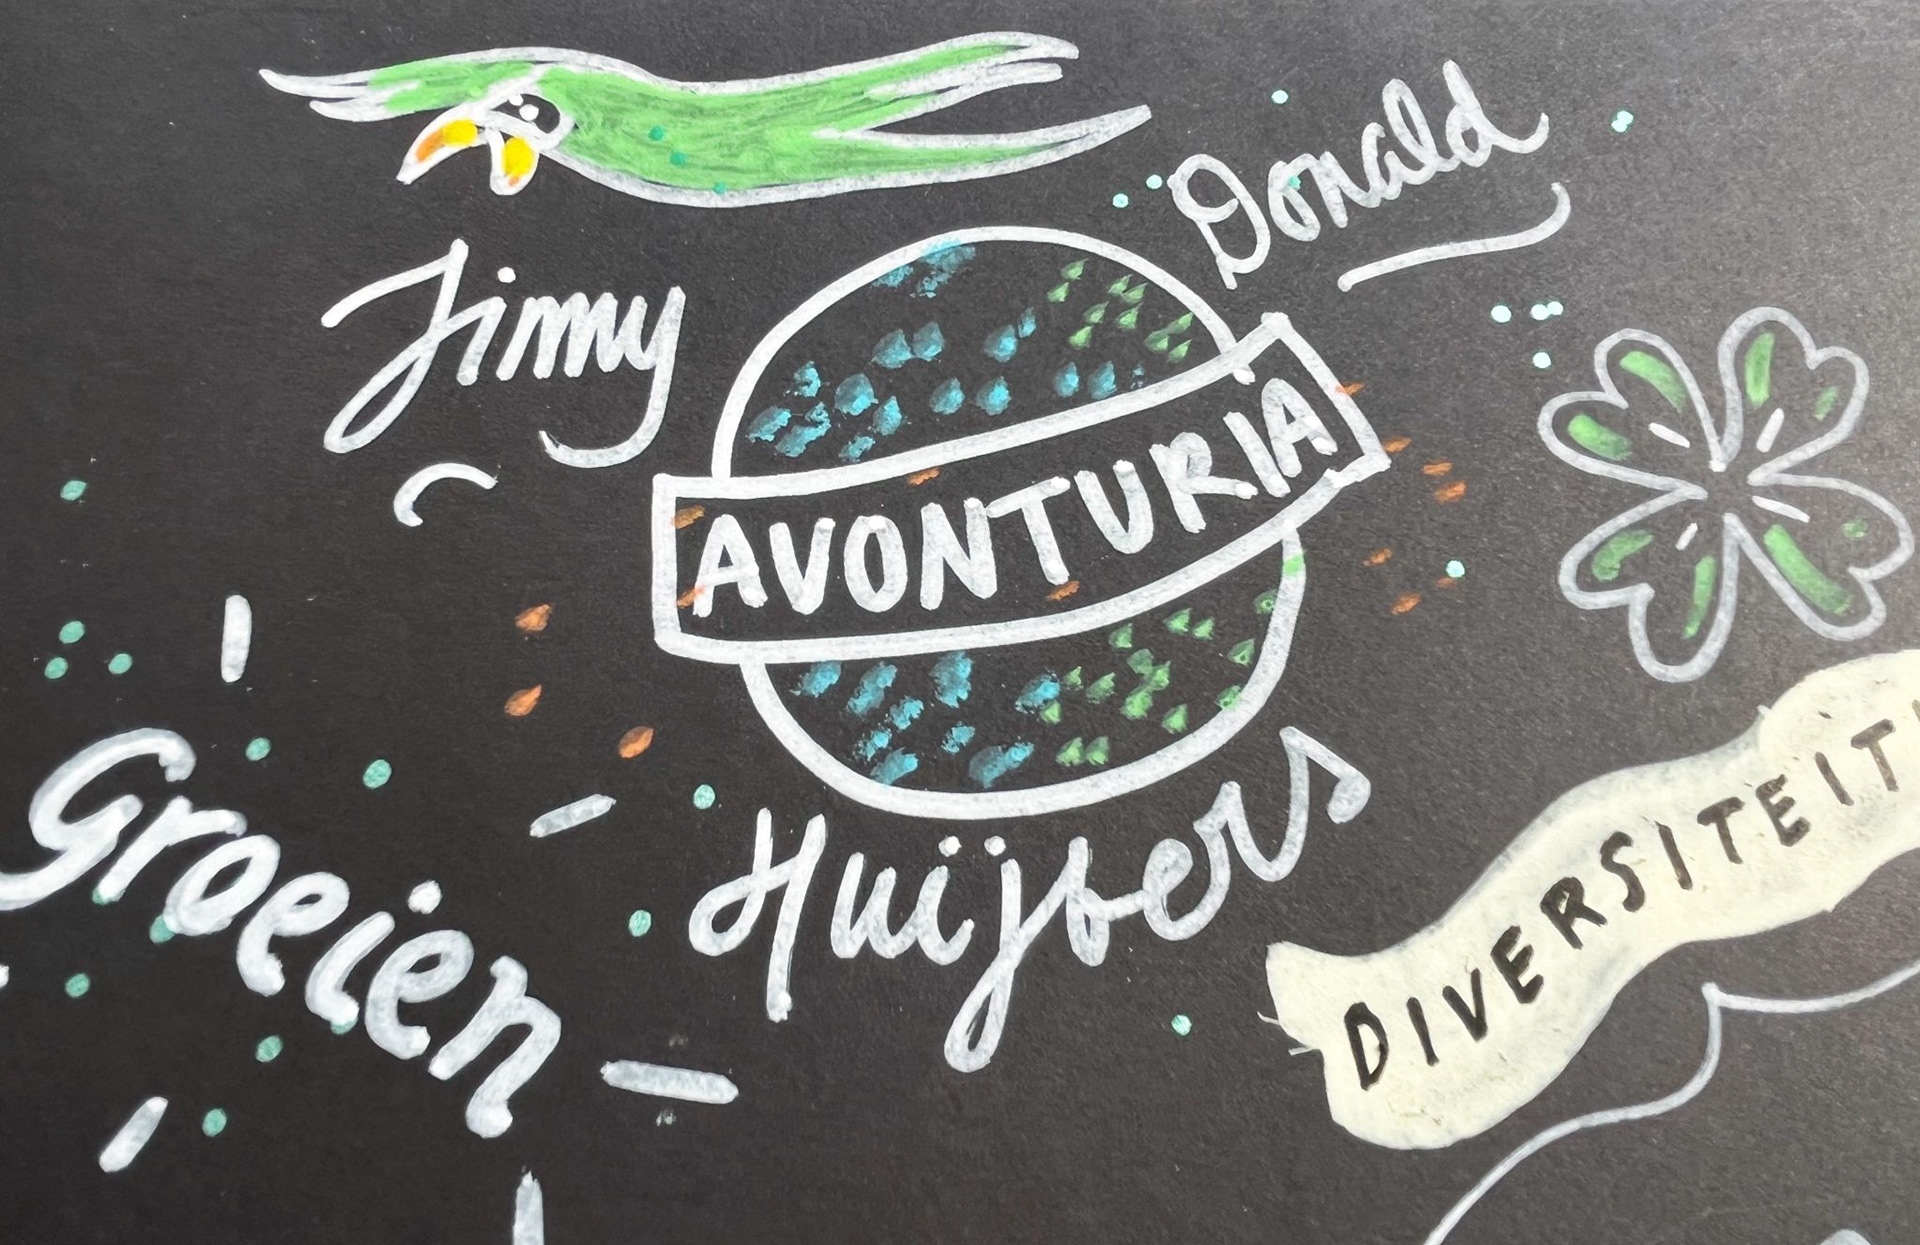 Donald
Jimmy
AVONTURIA
Huijbers
Groeiën
DIVERSITEIT